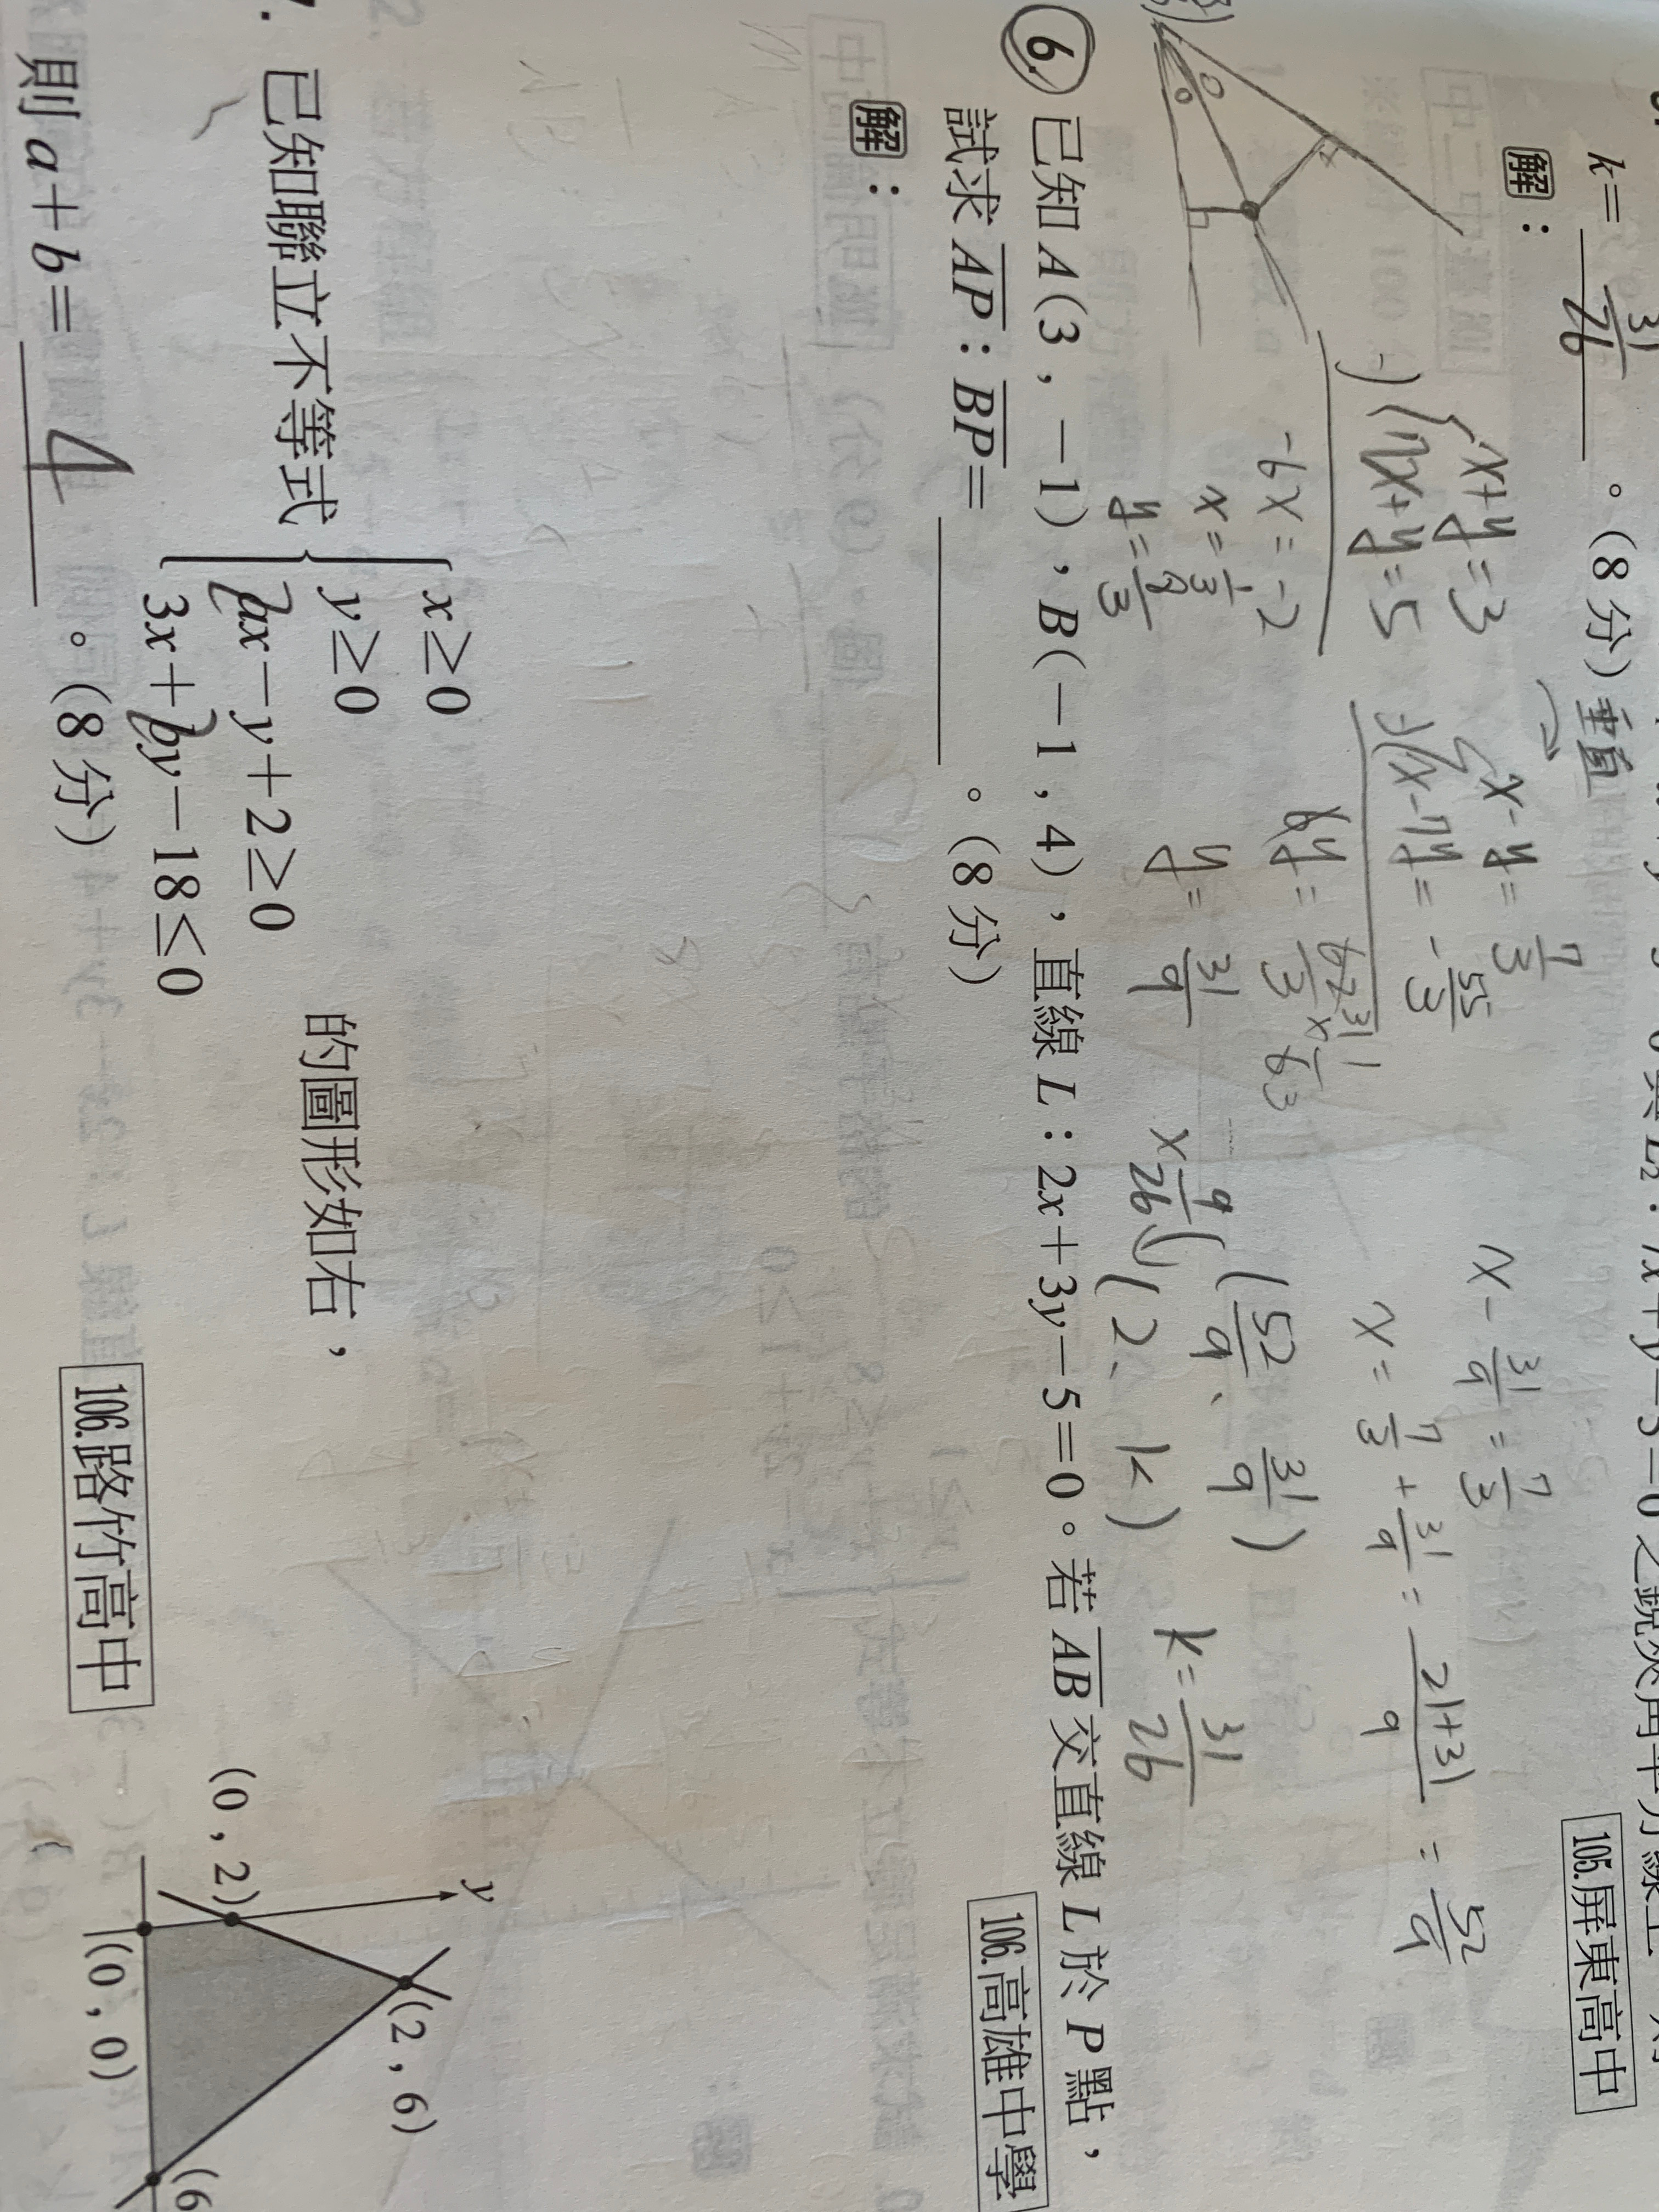 k= 31/26 。(8分) 垂直
105.屏東高中
解：
x+y=3
-) 7x+y=5
-6x=-2
x=1/3
y=8/3
x-y=7/3
-) x-7y=-55/3
6y=62/3
y=31/9
x-31/9=7/3
x=7/3+31/9=21+31/9=52/9
(52/9、31/9)
×9/26
(2、k)
k=31/26
6. 已知 A(3，-1)，B(-1，4)，直線 L：2x+3y-5=0。若 AB 交直線 L 於 P 點，
試求 AP：BP= 。(8分)
106.高雄中學
解：
已知聯立不等式
x≥0
y≥0
ax-y+2≥0
3x+by-18≤0
的圖形如右，
則 a+b= 4 。(8分)
106.路竹高中
y
(2，6)
(0，2)
(0，0)
(6